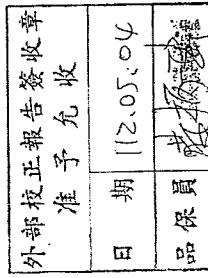 外部校正報告簽收章
准予允收
日期 112.05.04
品保員